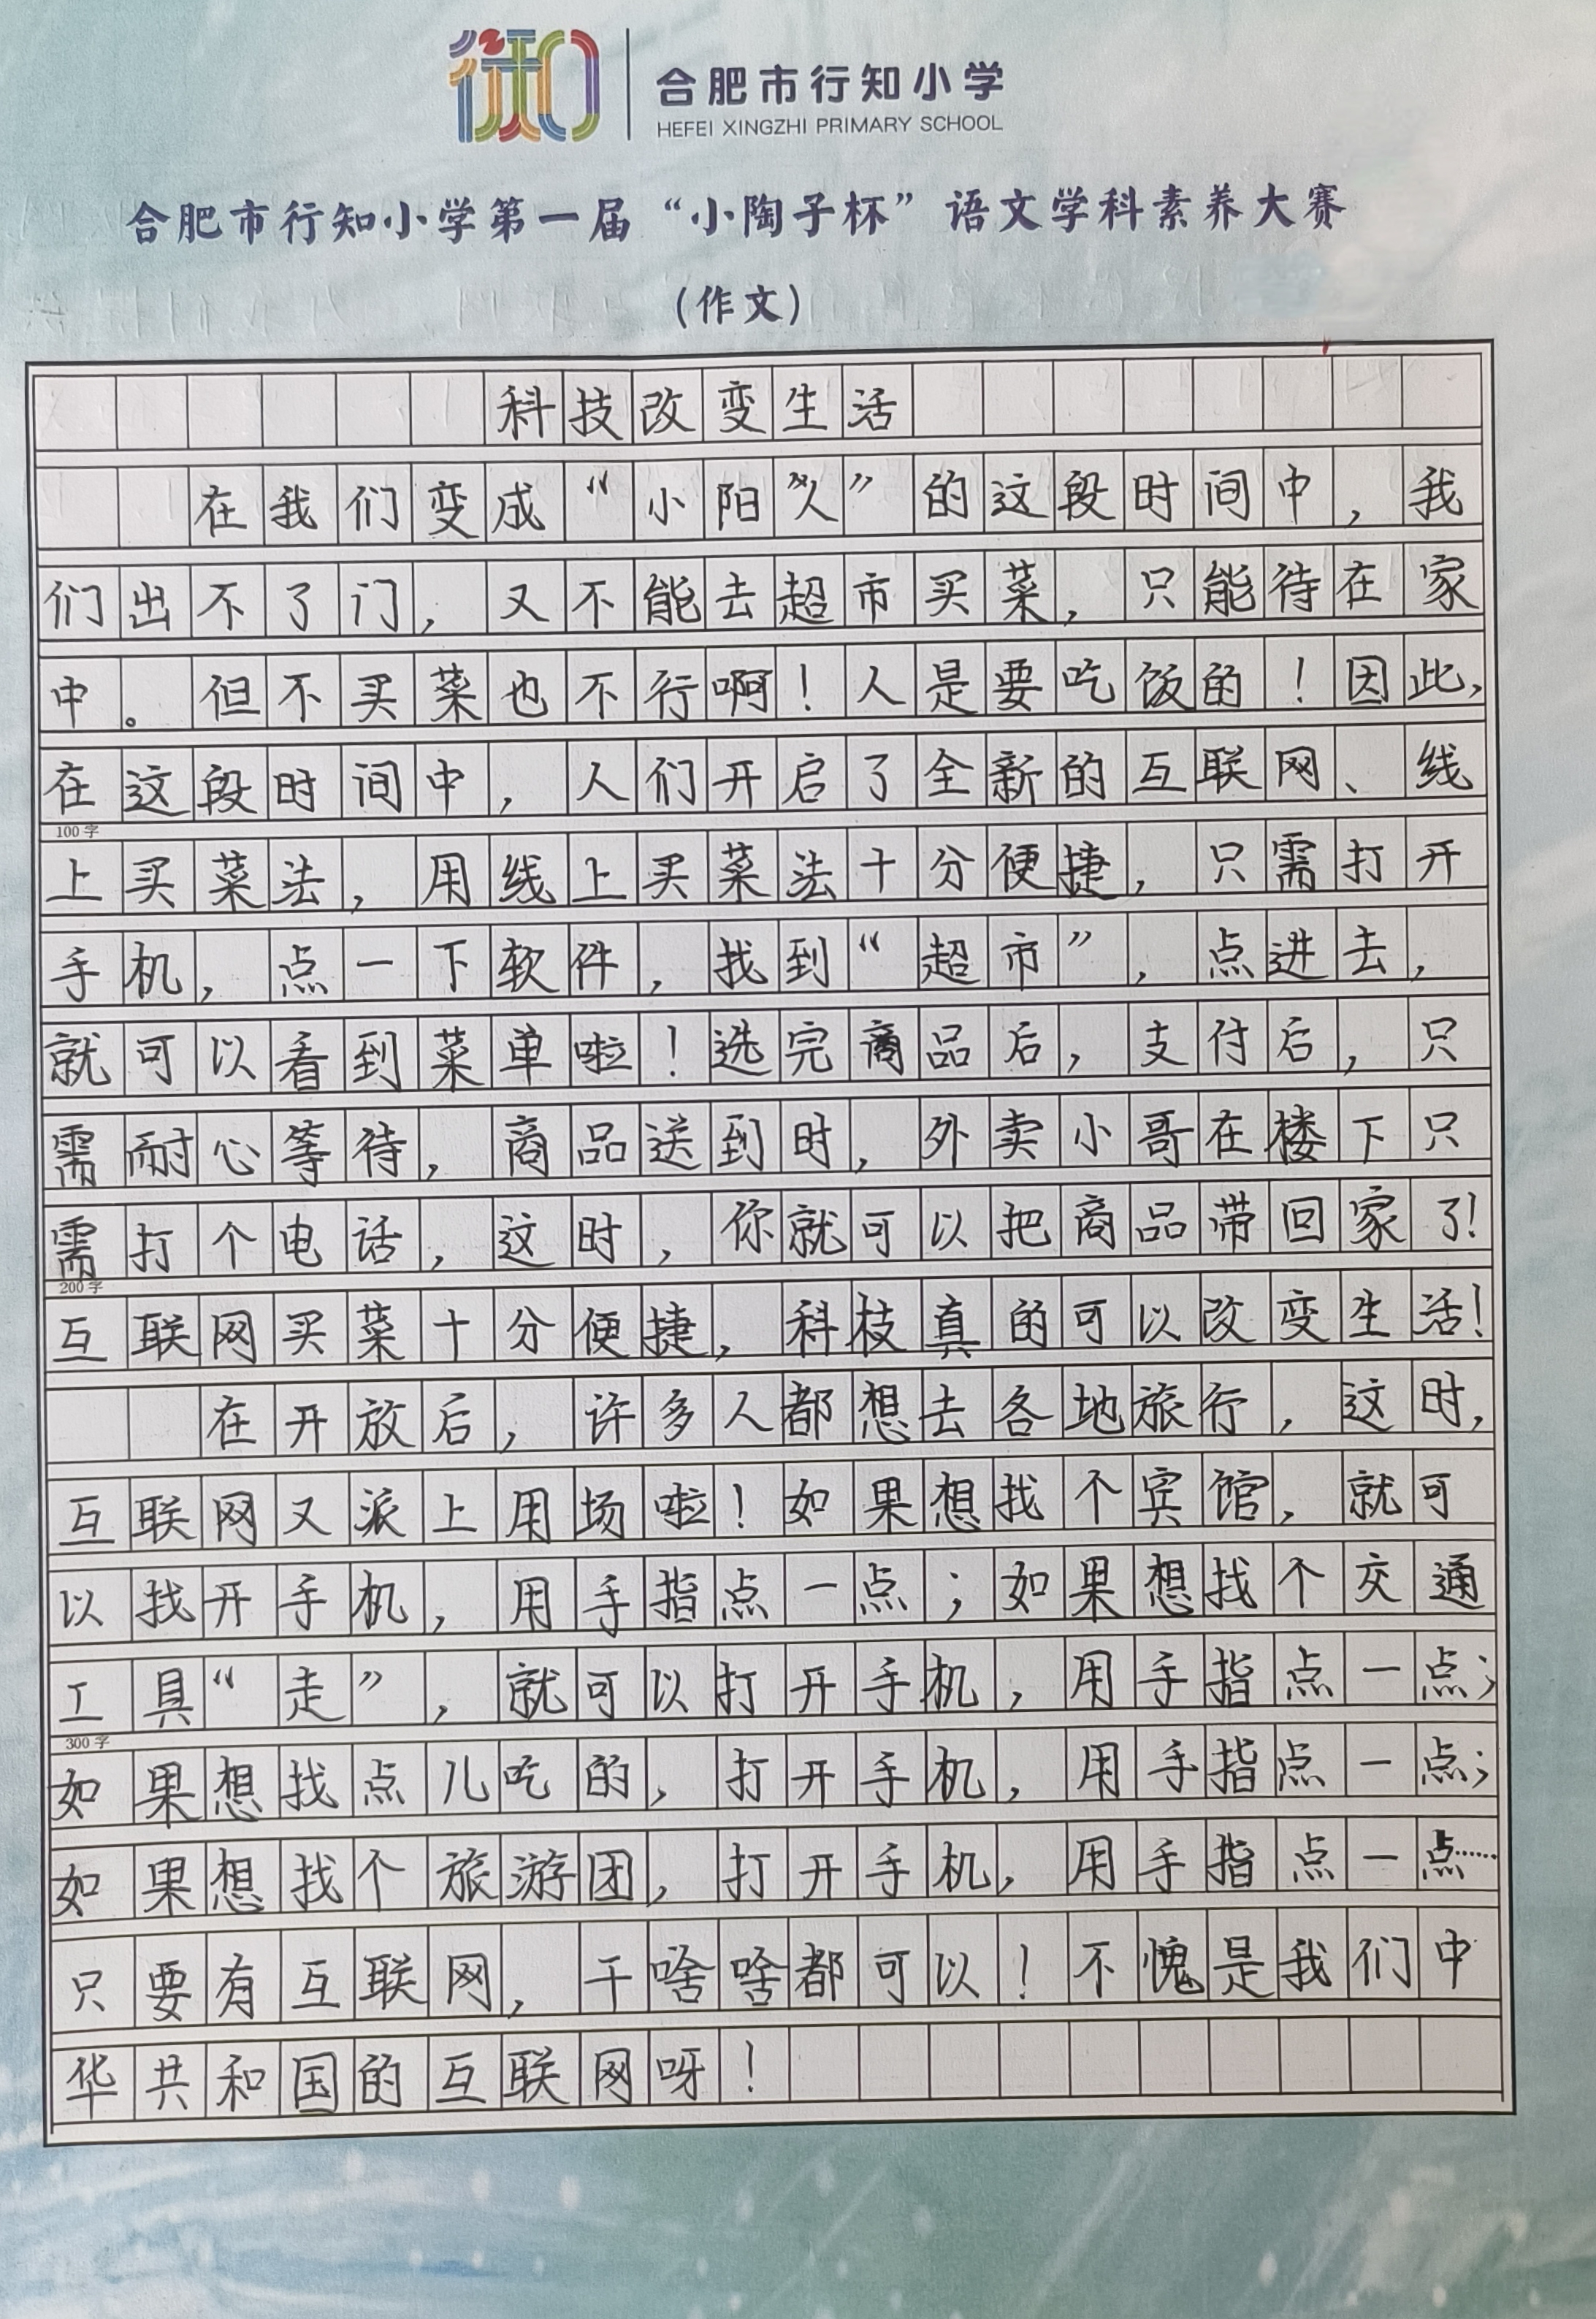 行知
合肥市行知小学
HEFEI XINGZHI PRIMARY SCHOOL
合肥市行知小学第一届“小陶子杯”语文学科素养大赛
(作文)
科技改变生活
在我们变成“小阳人”的这段时间中，我
们出不了门，又不能去超市买菜，只能待在家
中。但不买菜也不行啊！人是要吃饭的！因此，
在这段时间中，人们开启了全新的互联网、线
100字
上买菜法，用线上买菜法十分便捷，只需打开
手机，点一下软件，找到“超市”，点进去，
就可以看到菜单啦！选完商品后，支付后，只
需耐心等待，商品送到时，外卖小哥在楼下只
需打个电话，这时，你就可以把商品带回家了！
200字
互联网买菜十分便捷，科技真的可以改变生活！
在开放后，许多人都想去各地旅行，这时，
互联网又派上用场啦！如果想找个宾馆，就可
以找开手机，用手指点一点；如果想找个交通
工具“走”，就可以打开手机，用手指点一点；
300字
如果想找点儿吃的，打开手机，用手指点一点；
如果想找个旅游团，打开手机，用手指点一点……
只要有互联网，干啥啥都可以！不愧是我们中
华共和国的互联网呀！